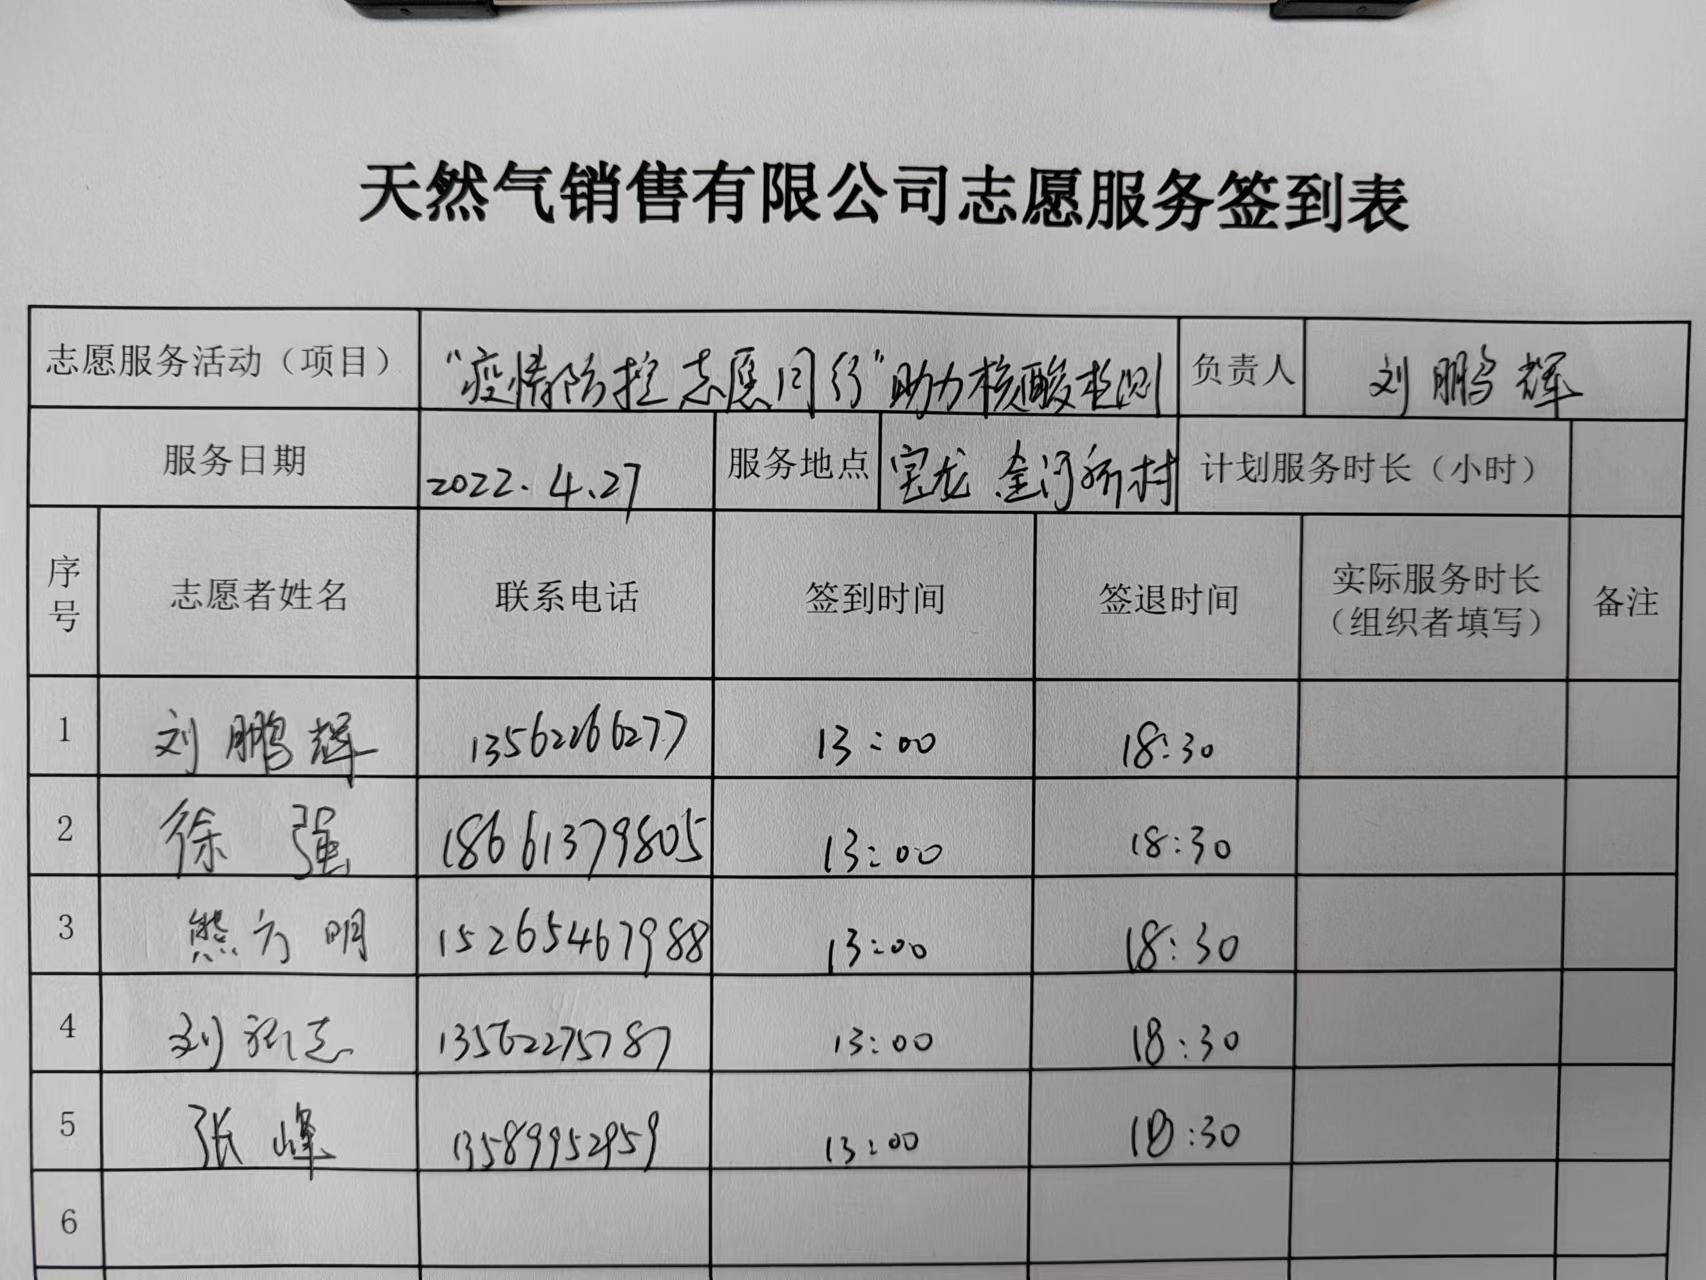 天然气销售有限公司志愿服务签到表
志愿服务活动（项目） “疫情防控 志愿同行”助力核酸检测 负责人 刘鹏辉
服务日期 2022.4.27 服务地点 宝龙 金河桥村 计划服务时长（小时）
序号 志愿者姓名 联系电话 签到时间 签退时间 实际服务时长（组织者填写） 备注
1 刘鹏辉 13562266277 13:00 18:30
2 徐强 18661379805 13:00 18:30
3 熊方明 15265467988 13:00 18:30
4 刘 志 13562275787 13:00 18:30
5 张峰 13589952959 13:00 18:30
6